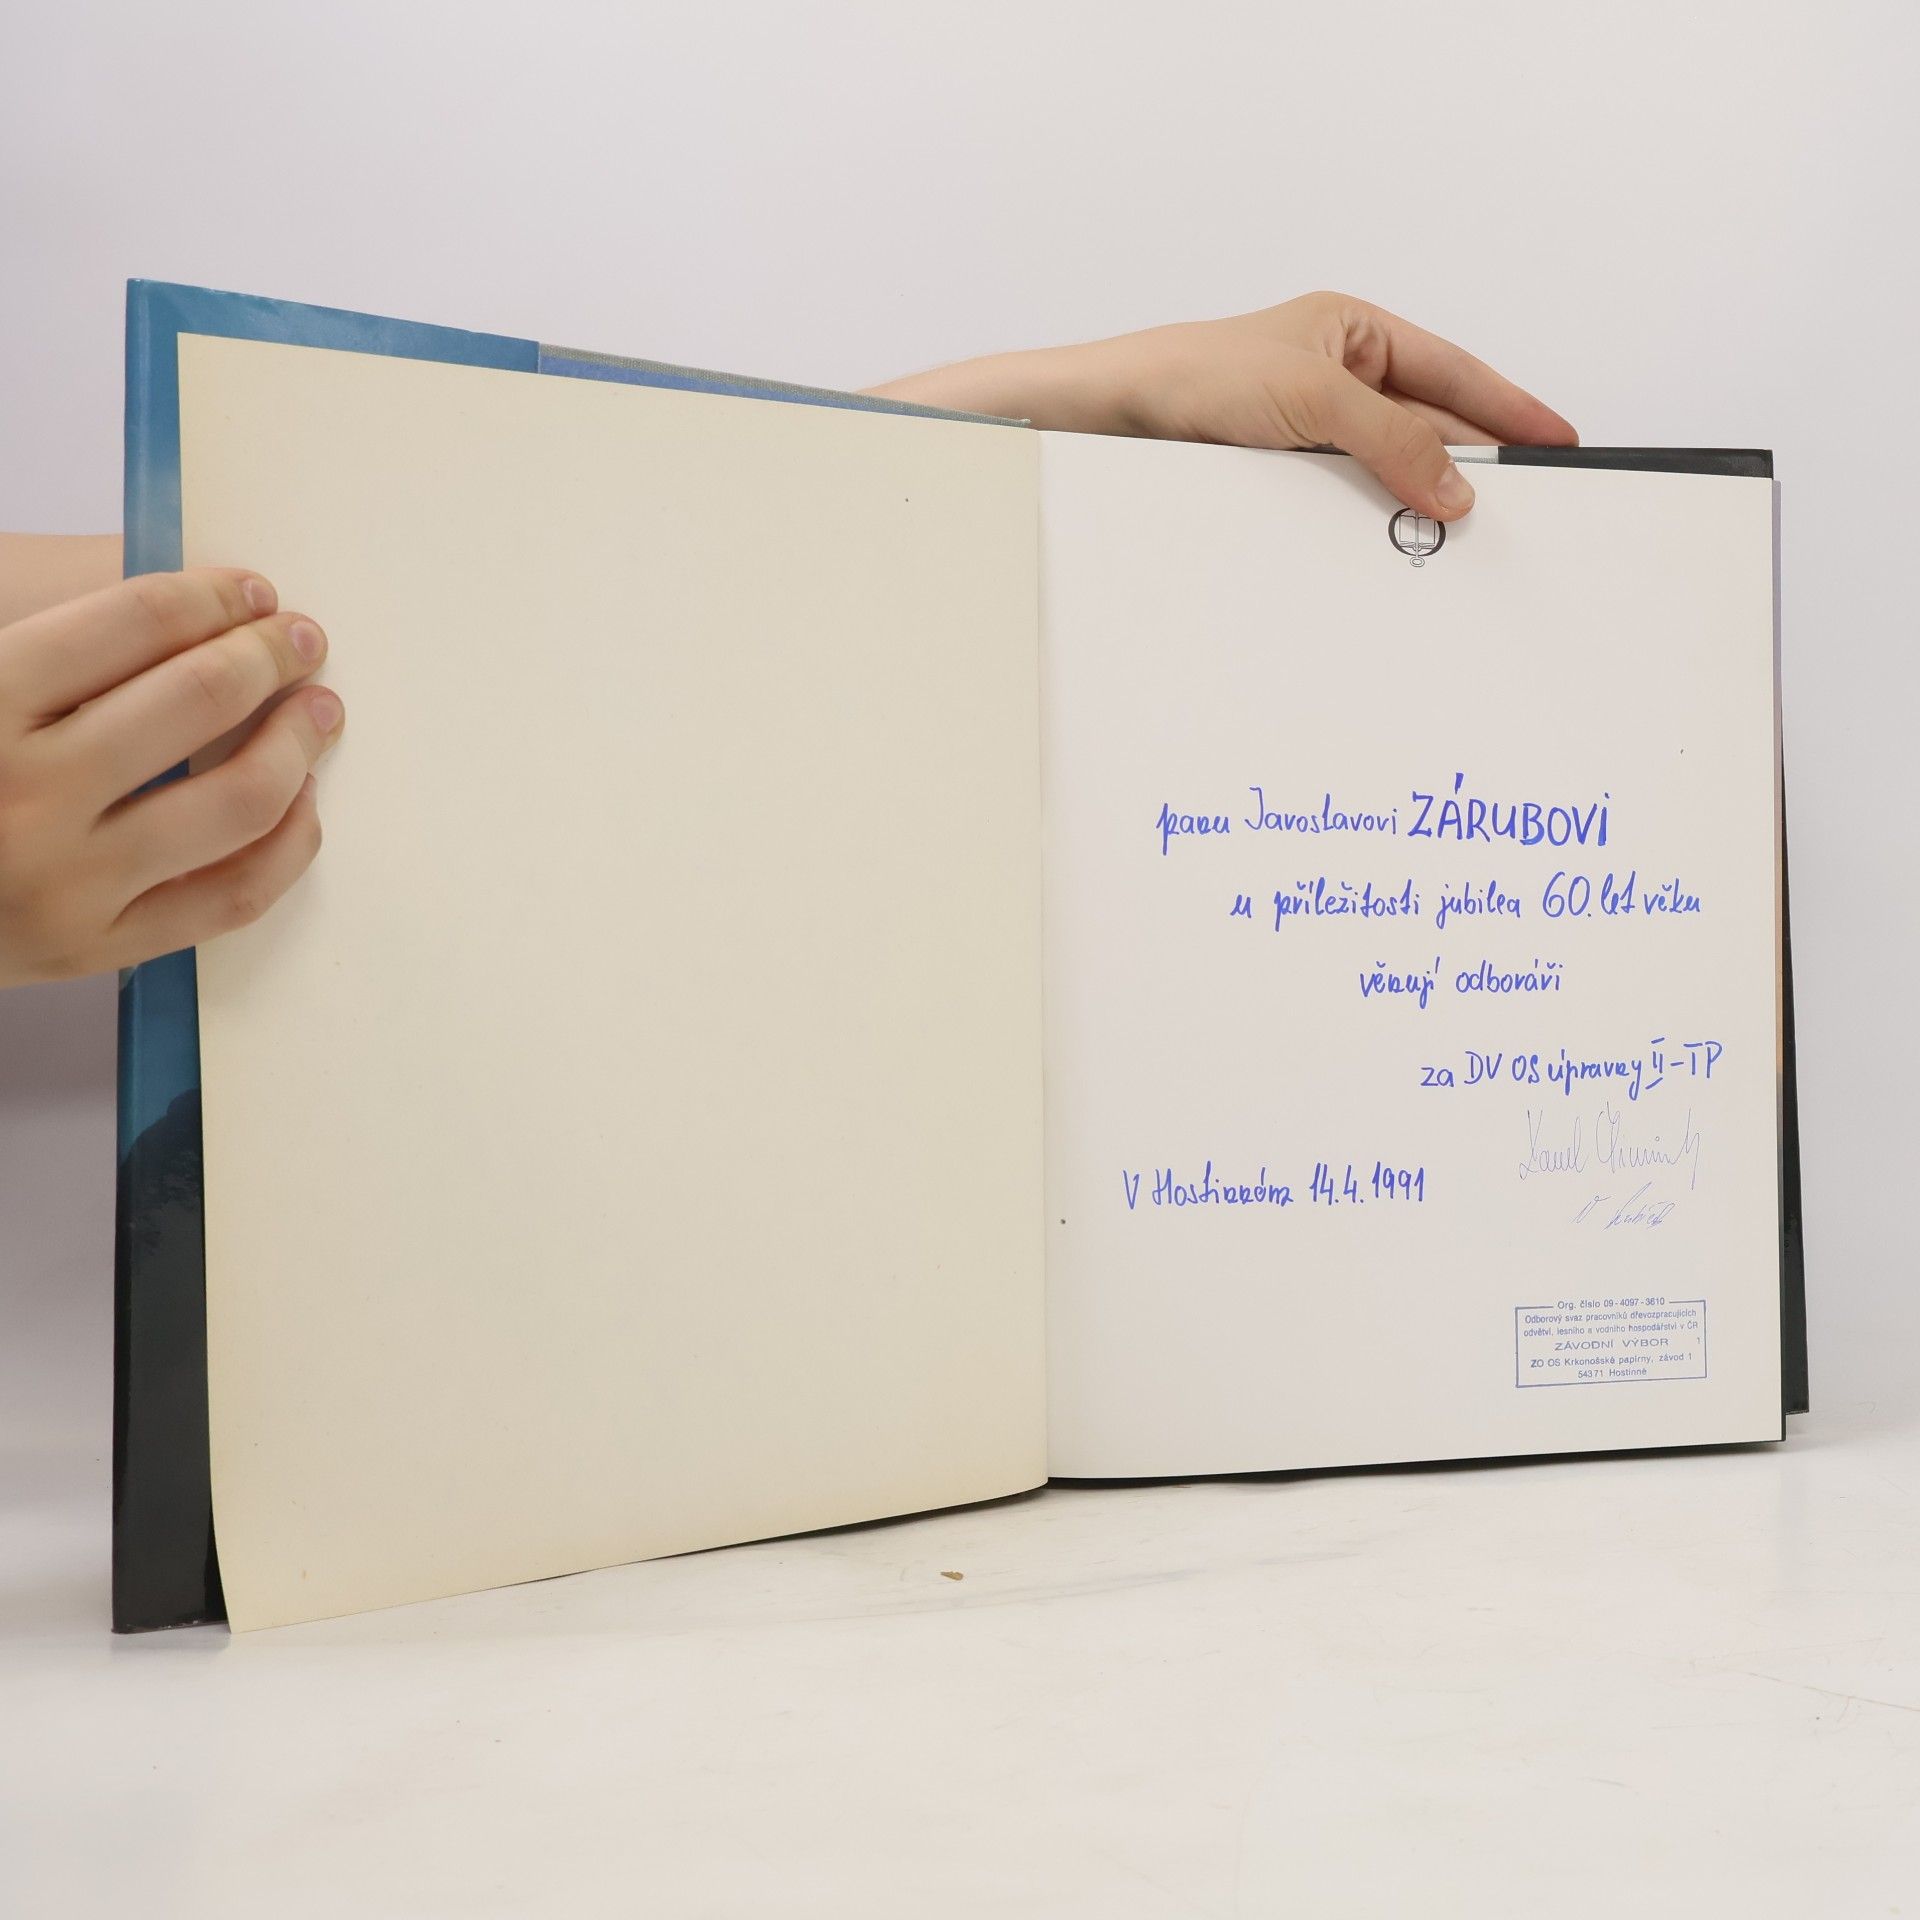 panu Jaroslavovi ZÁRUBOVI
u příležitosti jubilea 60. let věku
věnují odboráři
za DV OS úpravny II-TP
Karel
V Hostinném 14.4.1991
Org. číslo 09-4097-3610
Odborový svaz pracovníků dřevozpracujících
odvětví, lesního a vodního hospodářství v ČR
ZÁVODNÍ VÝBOR 1
ZO OS Krkonošské papírny, závod 1
54371 Hostinné